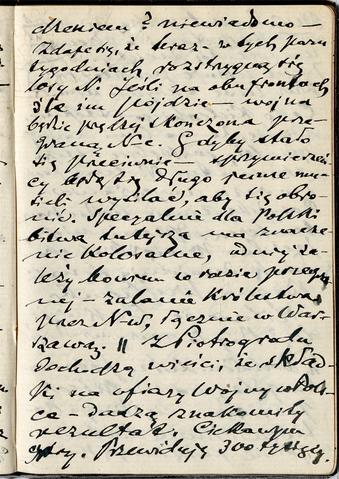 niewiadomo –
Zdaje się, że teraz – w tych paru
tygodniach rozstrzygną się
losy N. Jeśli na obu frontach
źle im pójdzie – wojna
będzie prędzej skończona prze-
graną N-c. Gdyby stało
się przeciwnie – sprzymierzeń-
cy będą się długo jeszcze mu-
sieli wysilać, aby się obro-
nić. Specyalnie dla Polski
bitwa tutejsza ma znacze-
nie kolosalne, od niej za-
leży bowiem w razie przegra-
nej – zalanie Królestwa
przez N-ów, łącznie w War-
szawą. || Z Piotrogradu
dochodzą wieści, że skład-
ki na ofiary wojny w Pols-
ce – dadzą znakomity
rezultat. Ciekawym
cyfry. Przewidują 300 tysięcy.